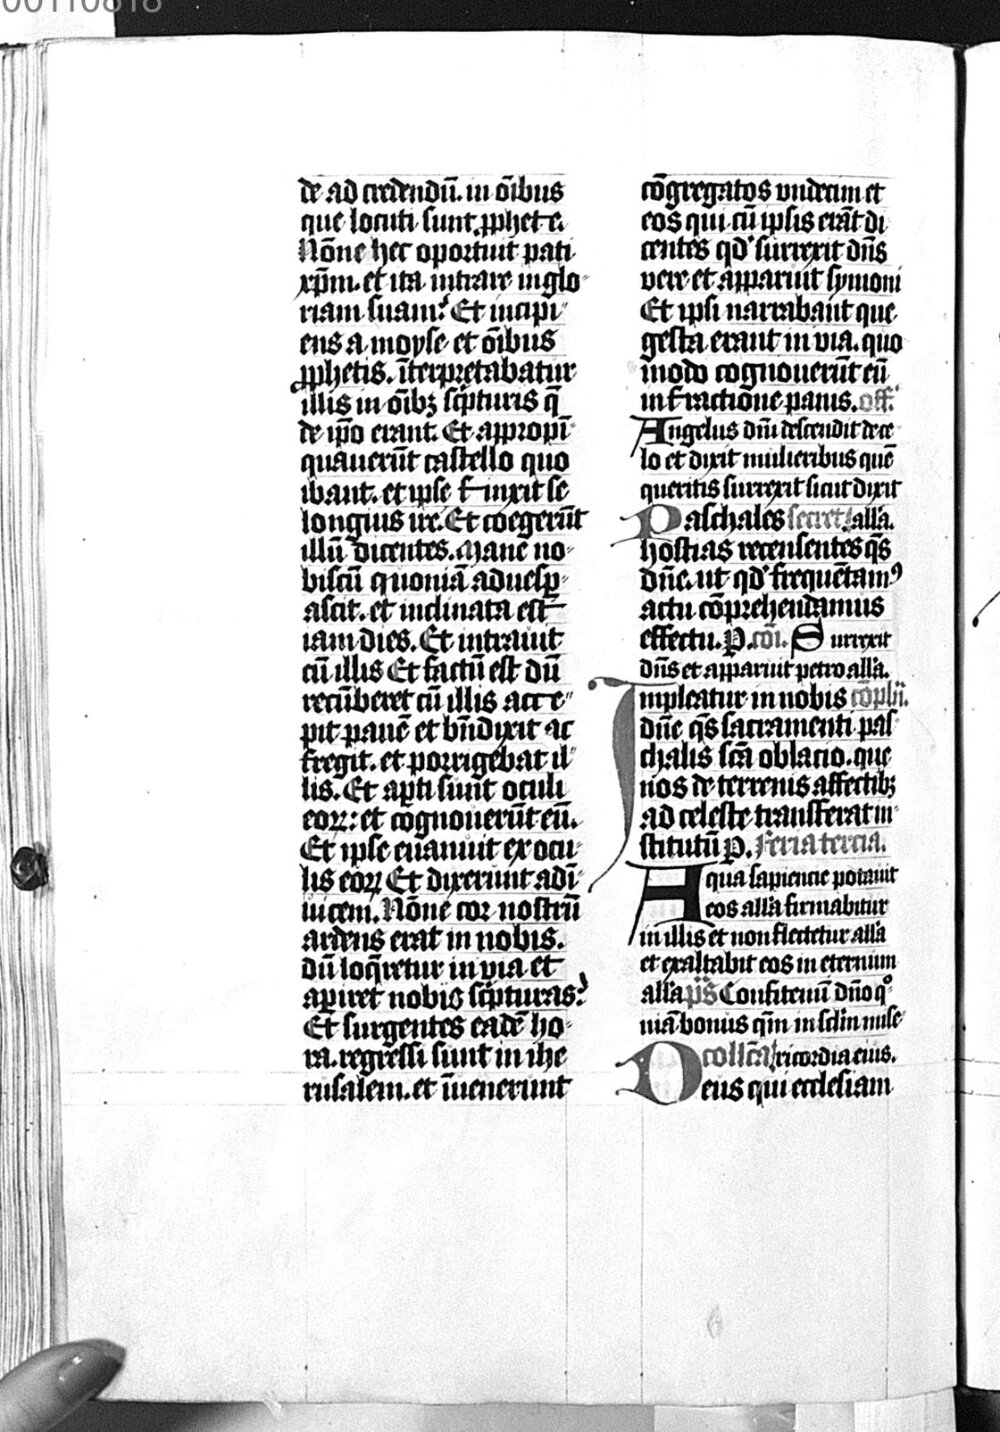 00110818
de ad credendū. in om̄ibus
que locuti sunt ꝓphete.
Nōne hec oportuit pati
xp̄m. et ita intrare in glo-
riam suam? Et incipi-
ens a moyse et om̄ibus
ꝓphetis. īterpretabatur
illis in om̄ibꝫ sc̄pturis q̄
de ip̄o erant. Et appropī-
quauerūt castello quo
ibant. et ipse finxit se
longius ire. Et coegerūt
illū dicentes. Mane no-
biscū quoniā aduesꝑ-
ascit. et inclinata est
iam dies. Et intrauit
cū illis Et factū est dū
recūberet cū illis acce-
pit panē et bn̄dixit ac
fregit. et porrigebat il-
lis. Et aꝑti sunt oculi
eoꝝ: et cognouerūt eū.
Et ipse euanuit ex ocu-
lis eoꝝ Et dixerunt adī-
uicem. Nōne cor nostrū
ardens erat in nobis.
dū loq̄retur in via et
aperiret nobis sc̄pturas?
Et surgentes eadē ho-
ra. regressi sunt in ihe
rusalem. et īuenerunt
cōgregatos vndecim et
eos qui cū ipsis erāt di
centes qd' surrexit dn̄s
vere et apparuit symoni
Et ipsi narrabant que
gesta erant in via. quo
modo cognouerūt eū
in fractione panis. off'
Angelus dn̄i descendit de ce-
lo et dixit mulieribus quē
queritis surrexit sicut dixit
Paschales secret' all'a.
hostias recensentes q̄s
dn̄e. ut qd' frequētamꝰ
actu cōprehendamus
effectu. P. cōi. Surrexit
dn̄s et apparuit petro all'a.
Impleatur in nobis cōpl'n̄.
dn̄e q̄s sacramenti pas
chalis sc̄a oblacio. que
nos de terrenis affectibꝫ
ad celeste transferat in-
stitutū P. Feria tercia.
Aqua sapiencie potauit
eos all'a firmabitur
in illis et non flectetur all'a
et exaltabit eos in eternum
all'a p̄s Confitemī dn̄o qͦ-
niā bonus qm̄ in sc̄l'm mise-
coll'ca ricordia eius.
Deus qui ecclesiam
6